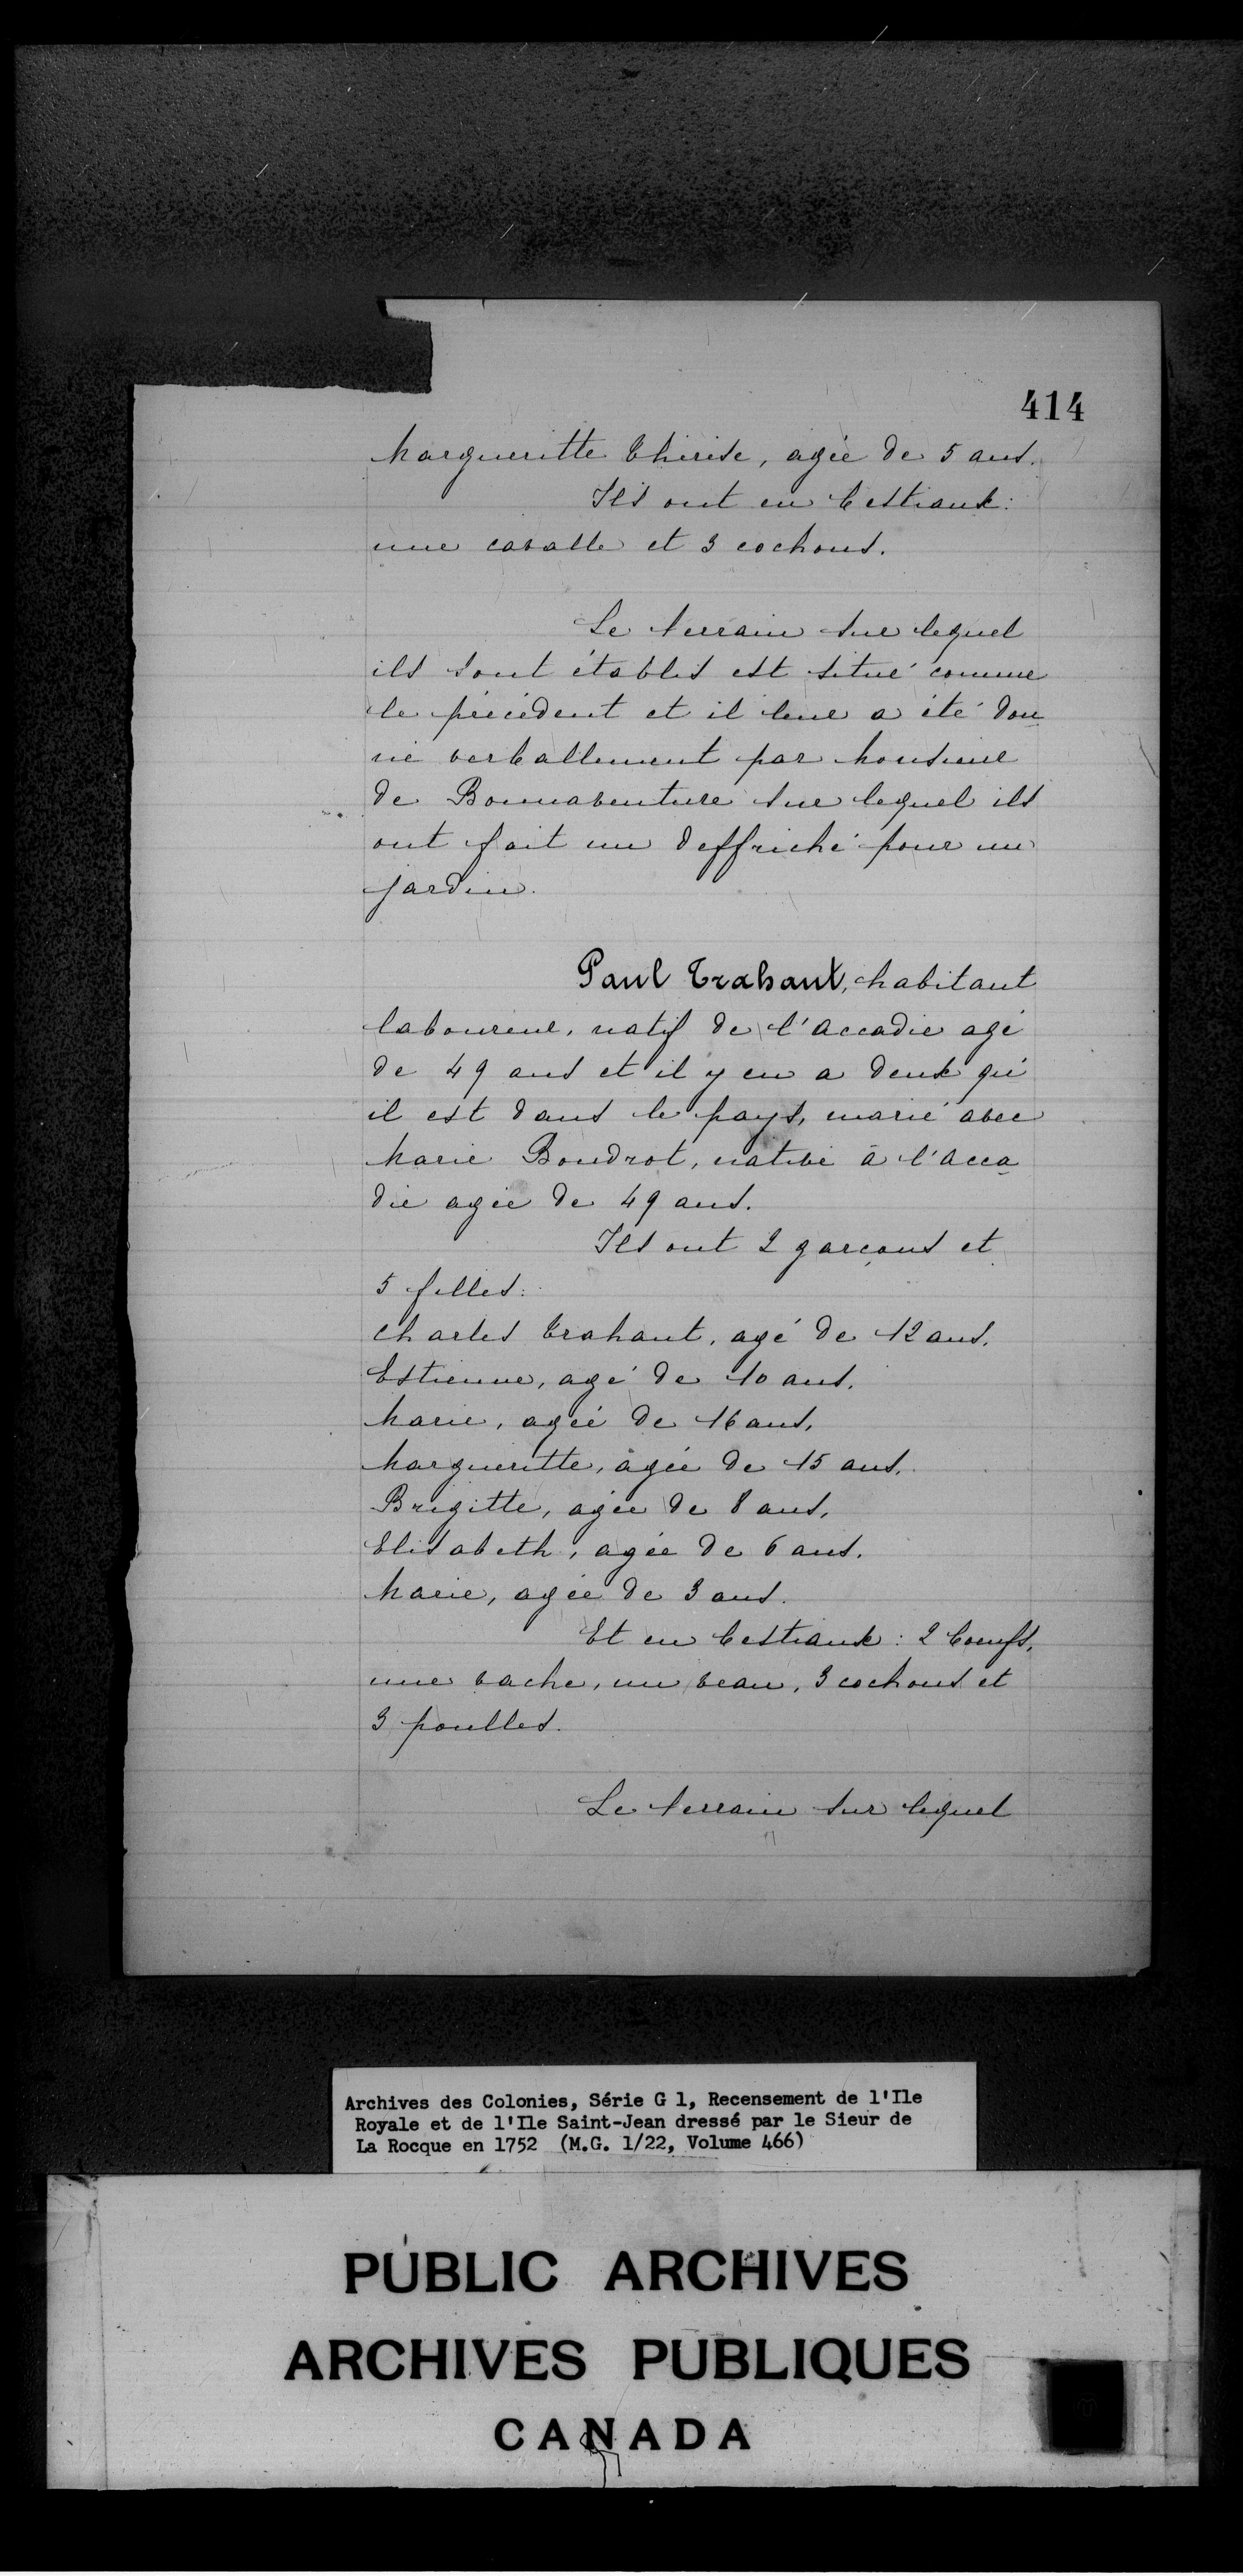 414
Margueritte Thérèse, agée de 5 ans.
Ils ont en bestiaux:
une cavalle et 3 cochons.
Le terrain sur lequel
ils sont établis est situé comme
le précédent et il leur a été don
né verballement par Monsieur
de Bonnaventure sur lequel ils
ont fait un deffriché pour un
jardin.
Paul Trahant, habitant
laboureur, natif de l'Accadie agé
de 49 ans et il y en a deux qu'
il est dans le pays, marié avec
Marie Boudrot, native à l'Acca
die agée de 49 ans.
Ils ont 2 garçons et
5 filles:
Charles Trahant, agé de 12 ans.
Estienne, agé de 10 ans.
Marie, agée de 16 ans,
Margueritte, agée de 15 ans.
Brigitte, agée de 8 ans,
Elisabeth, agée de 6 ans.
Marie, agée de 3 ans.
Et en bestiaux: 2 boeufs,
une vache, un veau, 3 cochons et
3 poulles.
Le terrain sur lequel
Archives des Colonies, Série G 1, Recensement de l'Ile
Royale et de l'Ile Saint-Jean dressé par le Sieur de
La Rocque en 1752 (M.G. 1/22, Volume 466)
PUBLIC ARCHIVES
ARCHIVES PUBLIQUES
CANADA